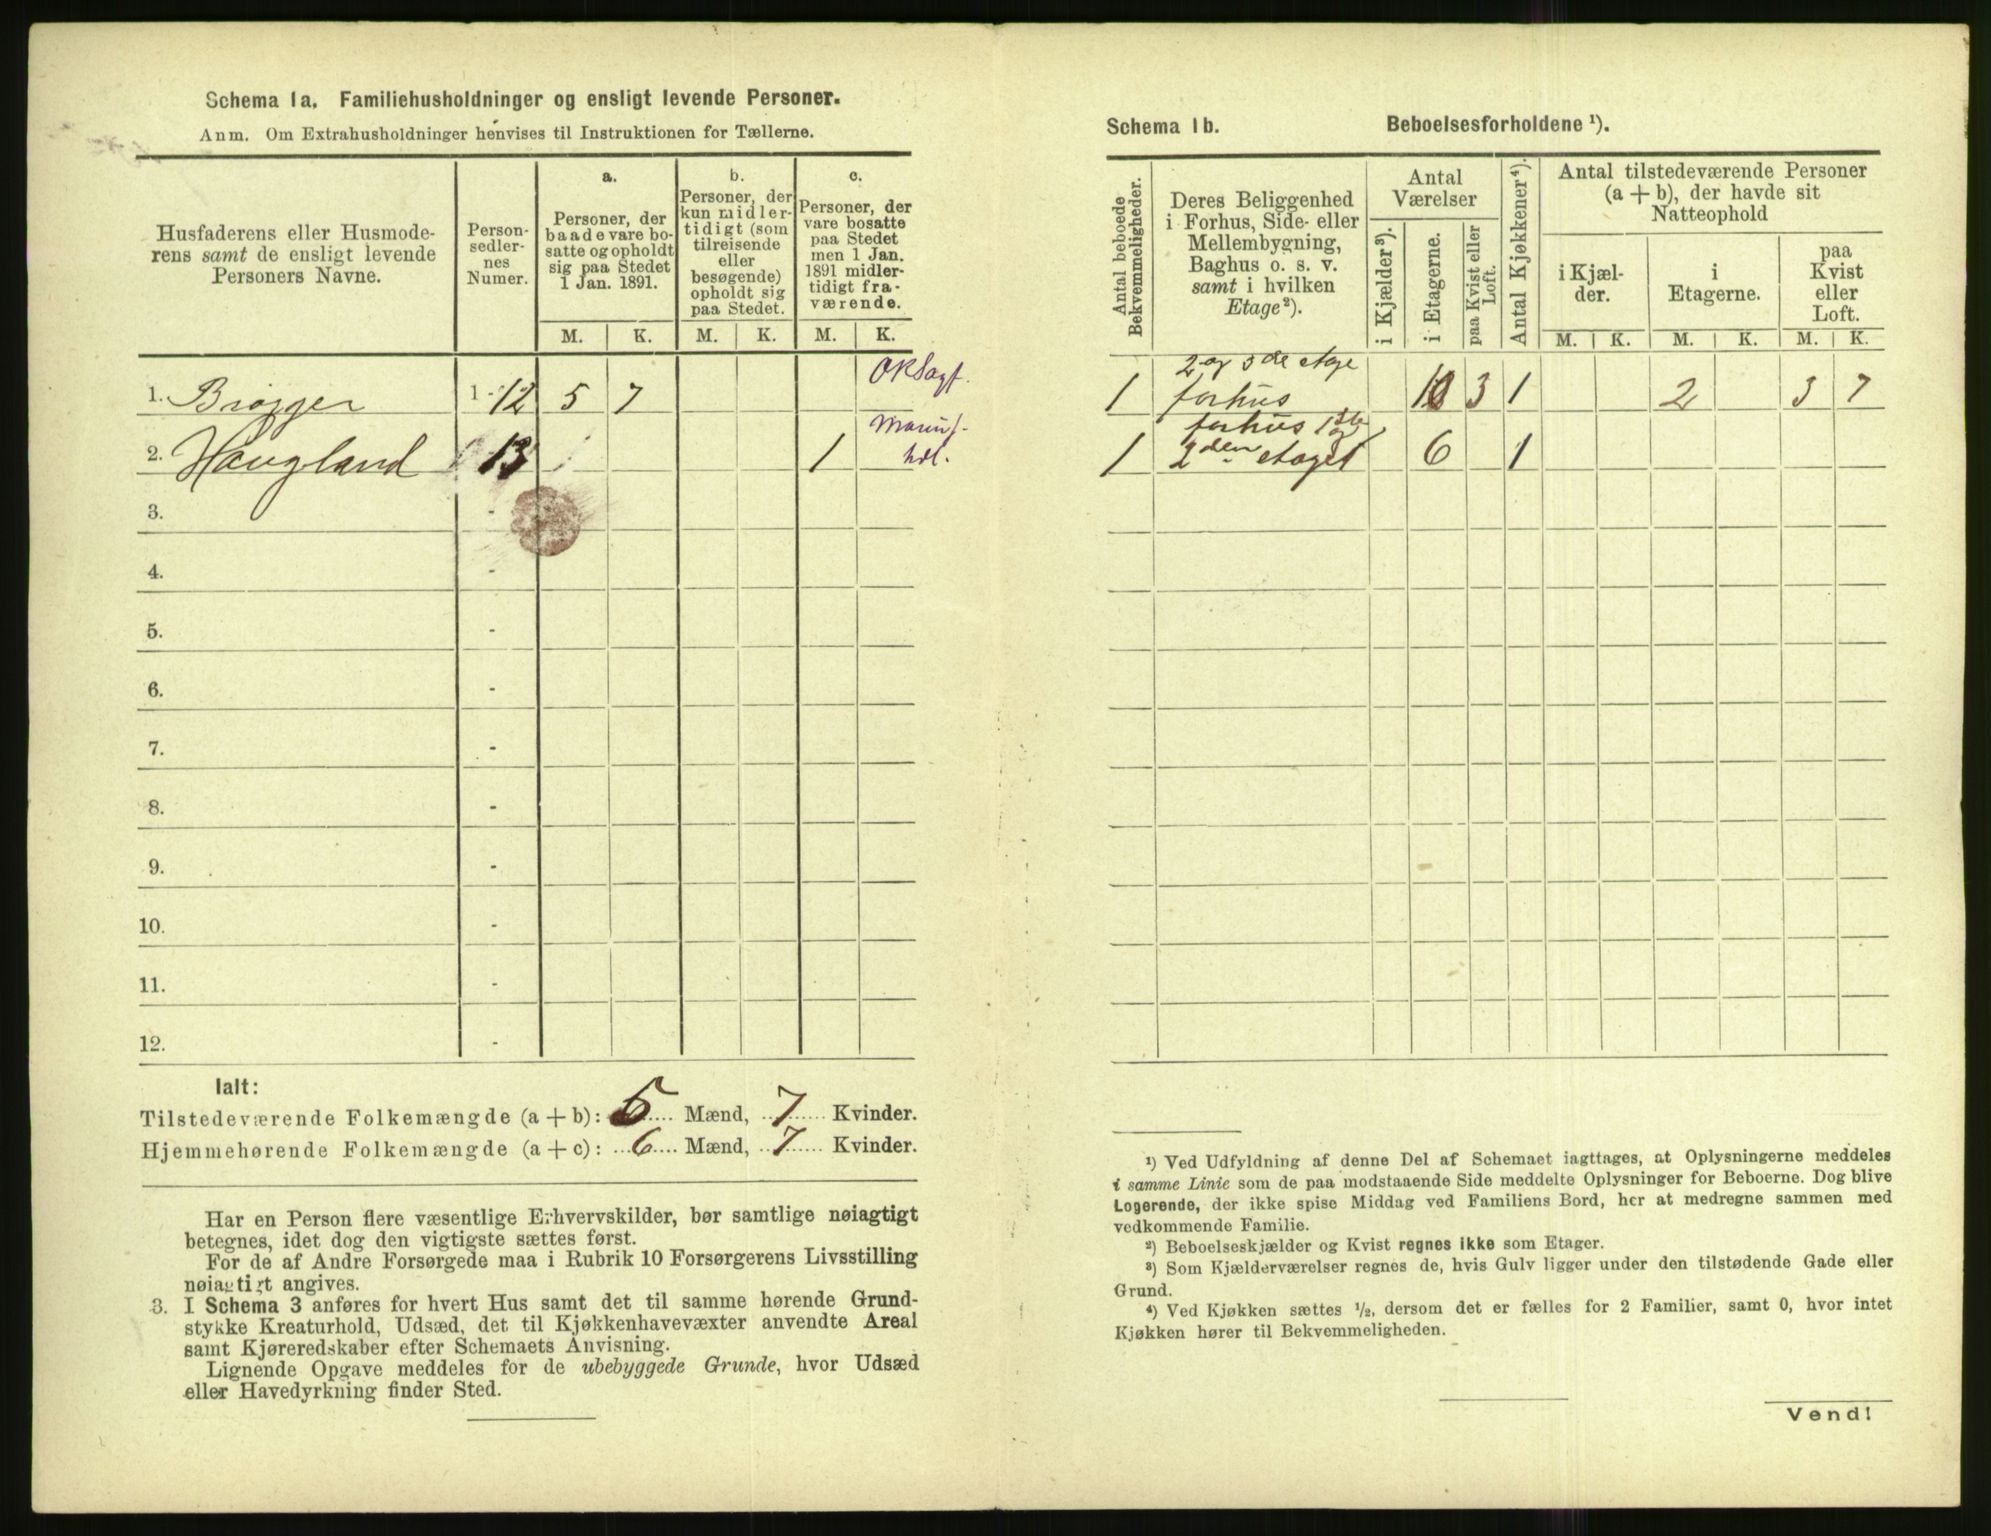 Schema 1a. Familiehusholdninger og ensligt levende Personer.
Anm. Om Extrahusholdninger henvises til Instruktionen for Tællerne.
Husfaderens eller Husmode-
rens samt de ensligt levende
Personers Navne.
Person-
sedler-
nes
Numer.
a.
Personer, der
baade vare bo-
satte og opholdt
sig paa Stedet
1 Jan. 1891.
b.
Personer, der
kun midler-
tidigt (som
tilreisende
eller
besøgende)
opholdt sig
paa Stedet.
c.
Personer, der
vare bosatte
paa Stedet
men 1 Jan.
1891 midler-
tidigt fra-
værende.
M. K. M. K. M. K.
1. Brøgger 1 - 12 5 7 OKSagf.
2. Haugland 13 1 Manuf. hdl.
3. -
4. -
5. -
6. -
7. -
8. -
9. -
10. -
11. -
12. -
Ialt:
Tilstedeværende Folkemængde (a + b): 5 Mænd, 7 Kvinder.
Hjemmehørende Folkemængde (a + c): 6 Mænd, 7 Kvinder.
Har en Person flere væsentlige Erhvervskilder, bør samtlige nøiagtigt
betegnes, idet dog den vigtigste sættes først.
For de af Andre Forsørgede maa i Rubrik 10 Forsørgerens Livsstilling
nøiagtigt angives.
3. I Schema 3 anføres for hvert Hus samt det til samme hørende Grund-
stykke Kreaturhold, Udsæd, det til Kjøkkenhavevæxter anvendte Areal
samt Kjøreredskaber efter Schemaets Anvisning.
Lignende Opgave meddeles for de ubebyggede Grunde, hvor Udsæd
eller Havedyrkning finder Sted.
Schema 1b. Beboelsesforholdene ¹).
Antal beboede
Bekvemmeligheder.
Deres Beliggenhed
i Forhus, Side- eller
Mellembygning,
Baghus o. s. v.
samt i hvilken
Etage²).
Antal
Værelser
i Kjælder³).
i Etagerne.
paa Kvist eller
Loft.
Antal Kjøkkener⁴).
Antal tilstedeværende Personer
(a + b), der havde sit
Natteophold
i Kjæl-
der.
i
Etagerne.
paa
Kvist
eller
Loft.
M. K. M. K. M. K.
2 og 3de etage
1 forhus 10 3 1 2 3 7
forhus 1ste og
1 2den etaget 6 1
¹) Ved Udfyldning af denne Del af Schemaet iagttages, at Oplysningerne meddeles
i samme Linie som de paa modstaaende Side meddelte Oplysninger for Beboerne. Dog blive
Logerende, der ikke spise Middag ved Familiens Bord, her at medregne sammen med
vedkommende Familie.
²) Beboelseskjælder og Kvist regnes ikke som Etager.
³) Som Kjælderværelser regnes de, hvis Gulv ligger under den tilstødende Gade eller
Grund.
⁴) Ved Kjøkken sættes ½, dersom det er fælles for 2 Familier, samt 0, hvor intet
Kjøkken hører til Bekvemmeligheden.
Vend!